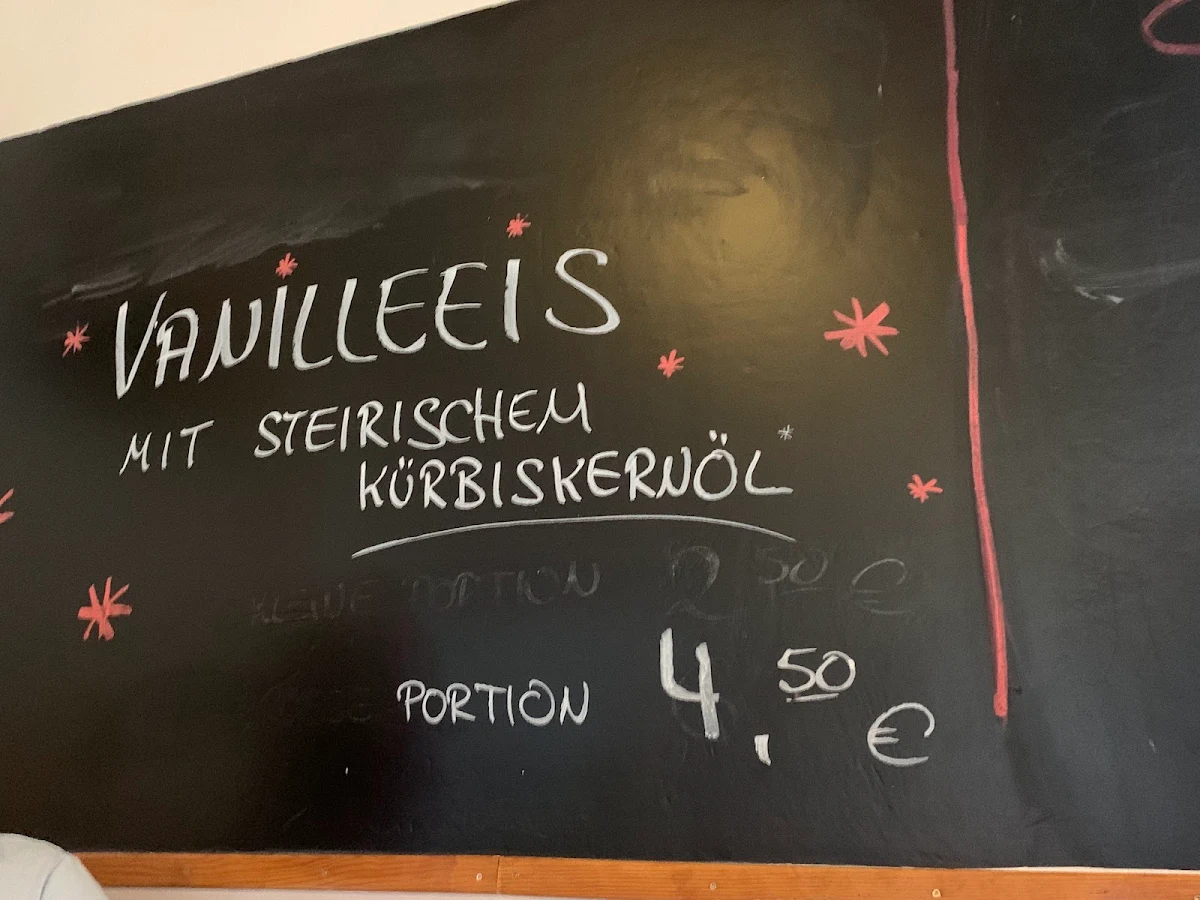 VANILLEEIS
MIT STEIRISCHEM
KÜRBISKERNÖL*
KLEINE PORTION 2 50 €
PORTION 4,50 €